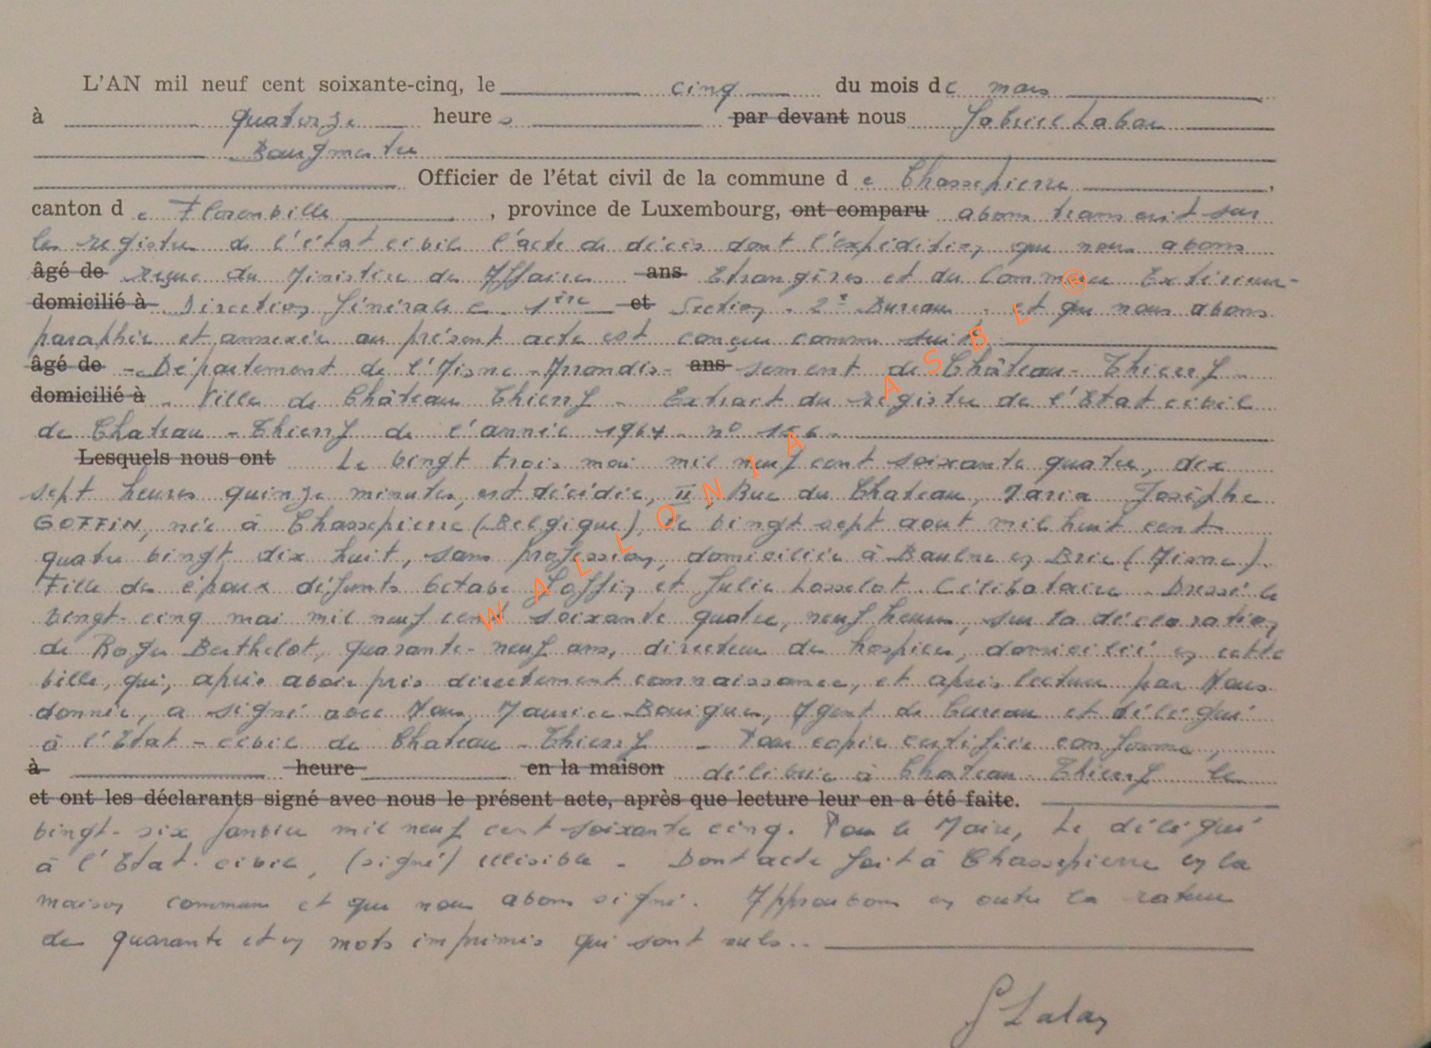 L'AN mil neuf cent soixante-cinq, le cinq du mois de mars
à quatorze heures par devant nous Gabriel Laban
Bourgmestre
Officier de l'état civil de la commune de Chassepierre,
canton de Florenville, province de Luxembourg, ont comparu avons transcrit sur
les registres de l'état civil l'acte de décès dont l'expédition, que nous avons
âgé de reçue du Ministère des Affaires ans Etrangères et du Commerce Extérieur-
domicilié à Direction Générale C. 1ère et Section. 2e Bureau. et que nous avons
paraphée et annexée au présent acte est conçue comme suit:
âgé de - Département de l'Aisne - Arrondis- ans sement de Château-Thierry -
domicilié à - Ville de Château Thierry - Extrait du registre de l'Etat civil
de Chateau-Thierry de l'année 1964 - n° 156 -
Lesquels nous ont Le vingt trois mai mil neuf cent soixante quatre, dix
sept heures quinze minutes, est décédée, II Rue du Chateau, Maria Josèphe
GOFFIN, née à Chassepierre (Belgique), le vingt sept aout mil huit cent
quatre vingt dix huit, sans profession, domiciliée à Baulne en Brie (Aisne).
Fille des époux défunts Octave Goffin et Julie Losselot. Célibataire. Dressé le
vingt-cinq mai mil neuf cent soixante quatre, neuf heures, sur la déclaration
de Roger Berthelot, quarante-neuf ans, directeur des hospices, domicilié en cette
ville, qui, après avoir pris directement connaissance, et après lecture par Nous
donnée, a signé avec Nous, Maurice Bouigues, Agent de bureau et délégué
à l'Etat-civil de Chateau-Thierry - Pour copie certifiée conforme,
à heure en la maison délivrée à Chateau-Thierry le
et ont les déclarants signé avec nous le présent acte, après que lecture leur en a été faite.
vingt-six janvier mil neuf cent soixante cinq. Pour le Maire, Le délégué
à l'Etat-civil, (signé) illisible - Dont acte fait à Chassepierre en la
maison commune et que nous avons signé. Approuvons en outre la rature
de quarante et un mots imprimés qui sont nuls..
G Laban
WALLONIA ASBL ®